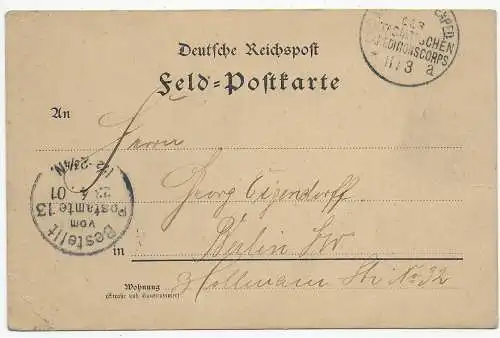 EXPED.
DES
OSTASIATISCHEN
EXPEDITIONSCORPS
11/3 a
Deutsche Reichspost
Feld=Postkarte
An
Herrn
Georg
Berlin SW
in
Hollmann Str No 32
Wohnung
(Straße und Hausnummer)
Bestellt
vom
Postamte 13
23 4 01
12-2¾N.